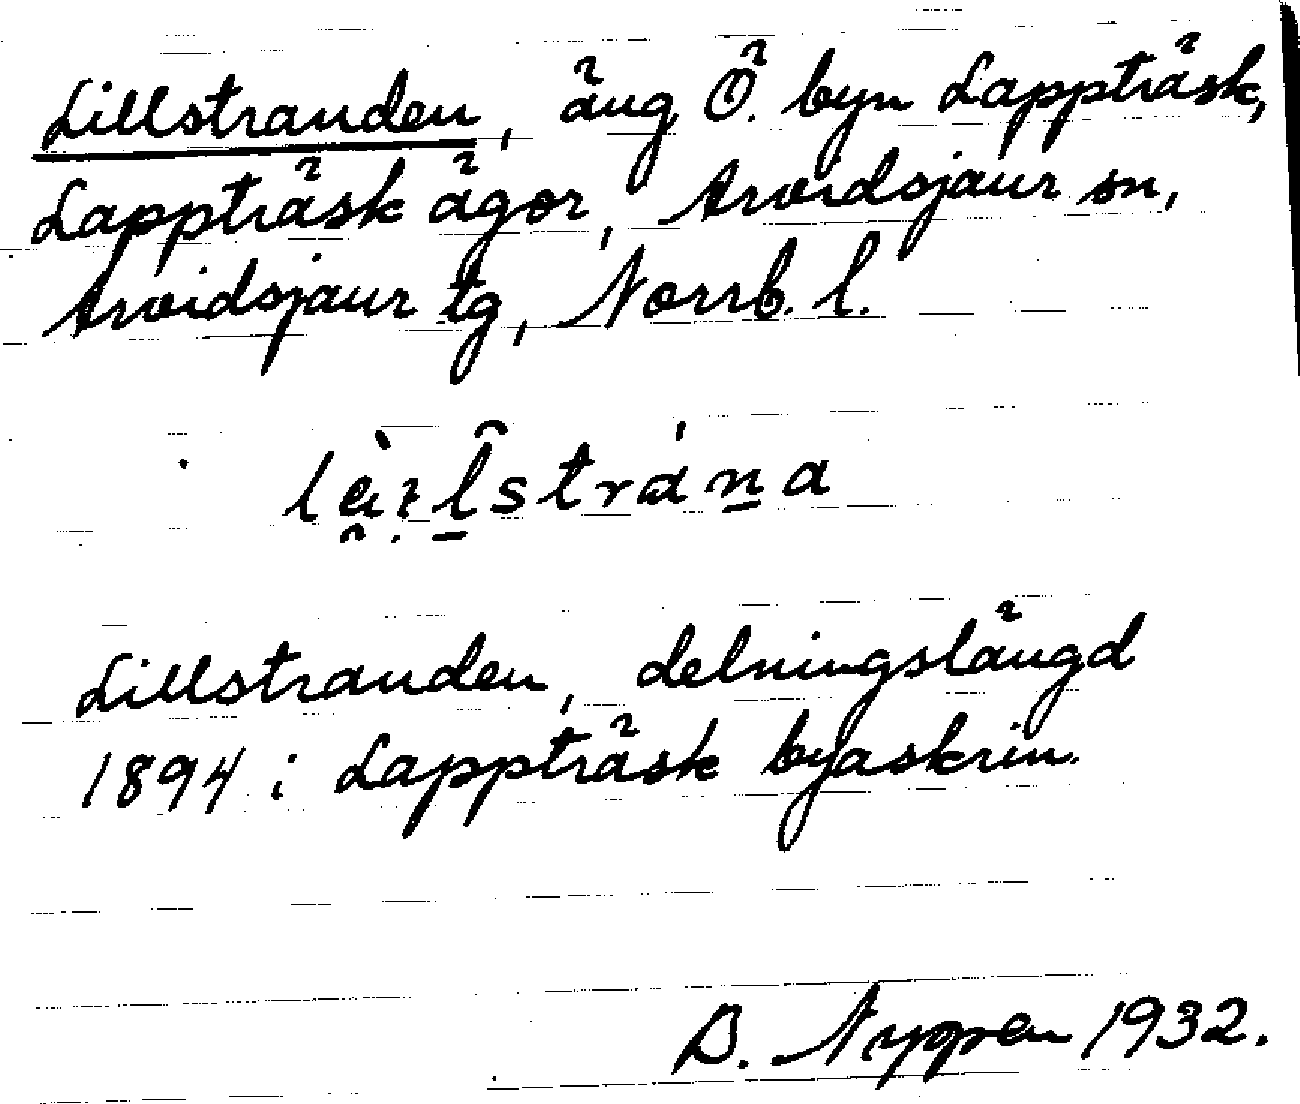 Lillstranden, äng Ö. byn Lappträsk,
Lappträsk ägor, Arvidsjaur sn,
Arvidsjaur tg, Norrb. l.
Lillstranden, delningslängd
1894 i Lappträsk byaskrin.
D. Nyren 1932.